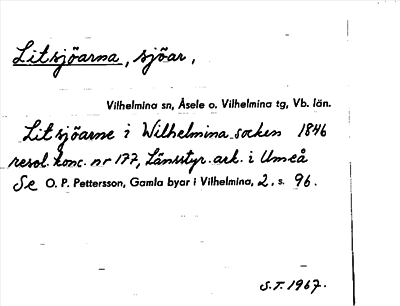 Litsjöarna, sjöar,
Vilhelmina sn, Åsele o. Vilhelmina tg, Vb. län.
Litsjöarne i Wilhelmina socken 1846
resol. konc. nr 177, Länsstyr. ark. i Umeå
Se O. P. Pettersson, Gamla byar i Vilhelmina, 2, s. 96.
S.T. 1967.